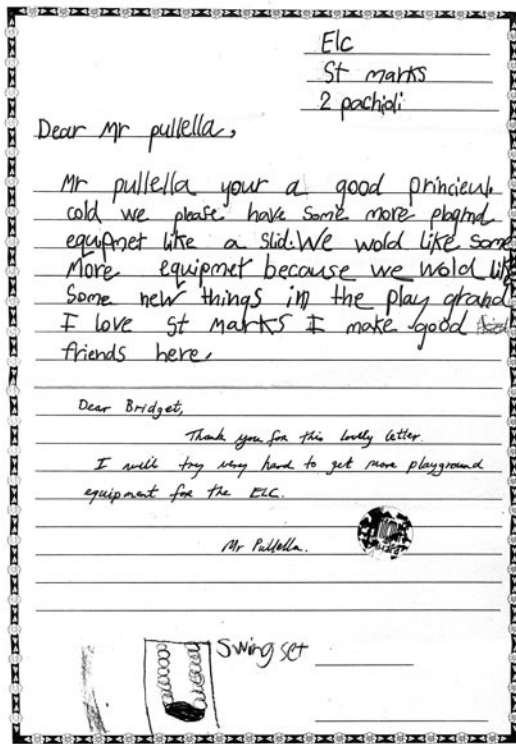 Elc
St marks
2 pachioli
Dear Mr pullella,
Mr pullella your a good
cold we please have some more
equipmet like a slid. We wold like some
More equipmet because we wold lik
Some new things in the play grand
I love St marks I make good
friends here,
Dear Bridget,
Thank you for this lovely letter.
I will try very hard to get more playground
equipment for the ELC.
Mr Pullella.
Swing set